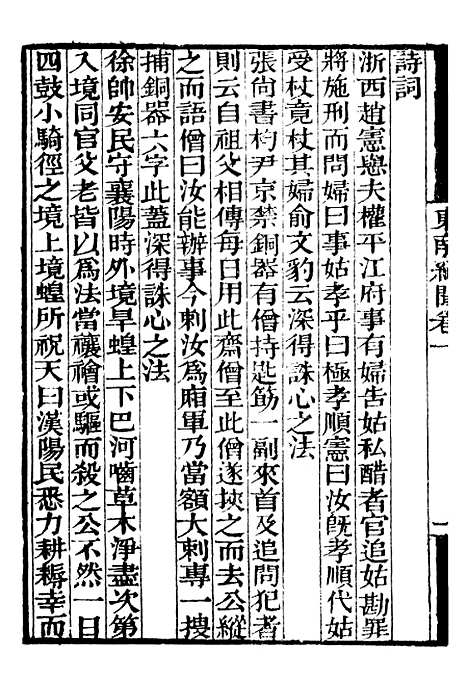 詩詞
浙西趙憲㦤夫權平江府事有婦告姑私醋者官追姑勘罪
將施刑而問婦曰事姑孝乎曰極孝順憲曰汝旣孝順代姑
受杖竟杖其婦俞文豹云深得誅心之法
張尙書杓尹京禁銅器有僧持匙筯一副來首及追問犯者
則云自祖父相傳每日用此齋僧至此僧遂挾之而去公縱
之而語僧曰汝能辦事今刺汝爲廂軍乃當額大刺專一搜
捕銅器六字此蓋深得誅心之法
徐帥安民守襄陽時外境旱蝗上下巴河嚙草木淨盡次第
入境同官父老皆以爲法當禳禬或驅而殺之公不然一日
四鼓小騎徑之境上境蝗所祝天曰漢陽民悉力耕耨幸而
東南紀聞卷一